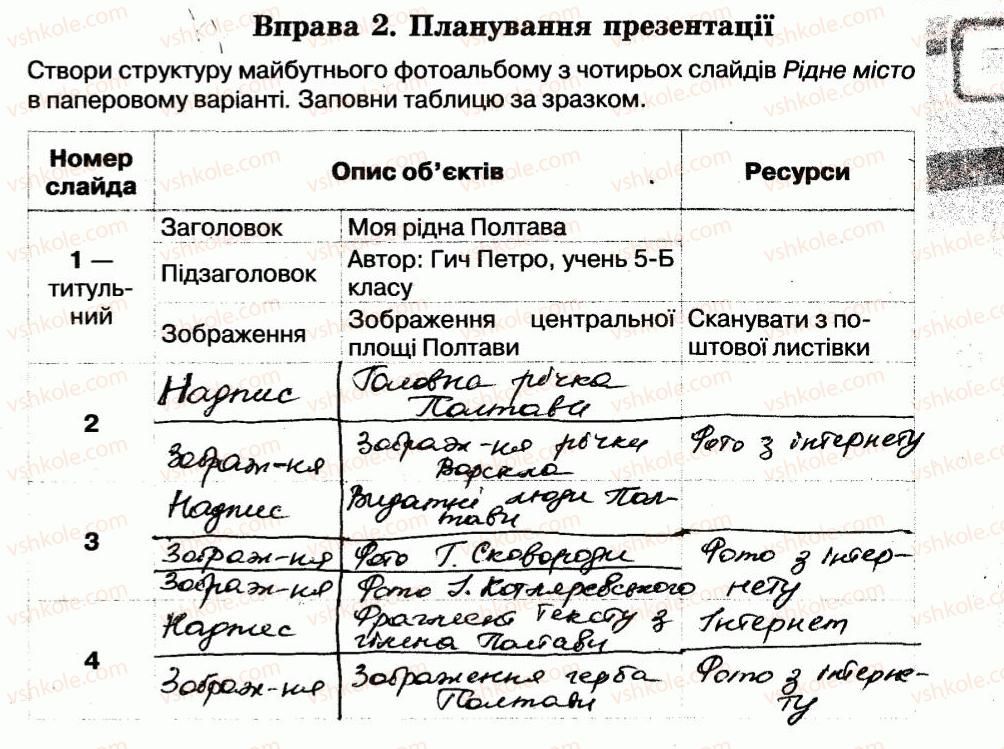 Вправа 2. Планування презентації
Створи структуру майбутнього фотоальбому з чотирьох слайдів Рідне місто
в паперовому варіанті. Заповни таблицю за зразком.
Номер
слайда
Опис об'єктів
Ресурси
1 —
титуль-
ний
Заголовок
Моя рідна Полтава
Підзаголовок
Автор: Гич Петро, учень 5-Б
класу
Зображення
Зображення центральної
площі Полтави
Сканувати з по-
штової листівки
2
Надпис
Головна річка
Полтави
Зображ-ня
Зображ-ня річки
Ворскла
Фото з інтернету
3
Надпис
Видатні люди Пол-
тави
Зображ-ня
Фото Г. Сковороди
Фото з інтер-
нету
Зображ-ня
Фото І. Котляревського
4
Надпис
Фрагмент тексту з
гімна Полтави
Інтернет
Зображ-ня
Зображення герба
Полтави
Фото з інтерне-
ту